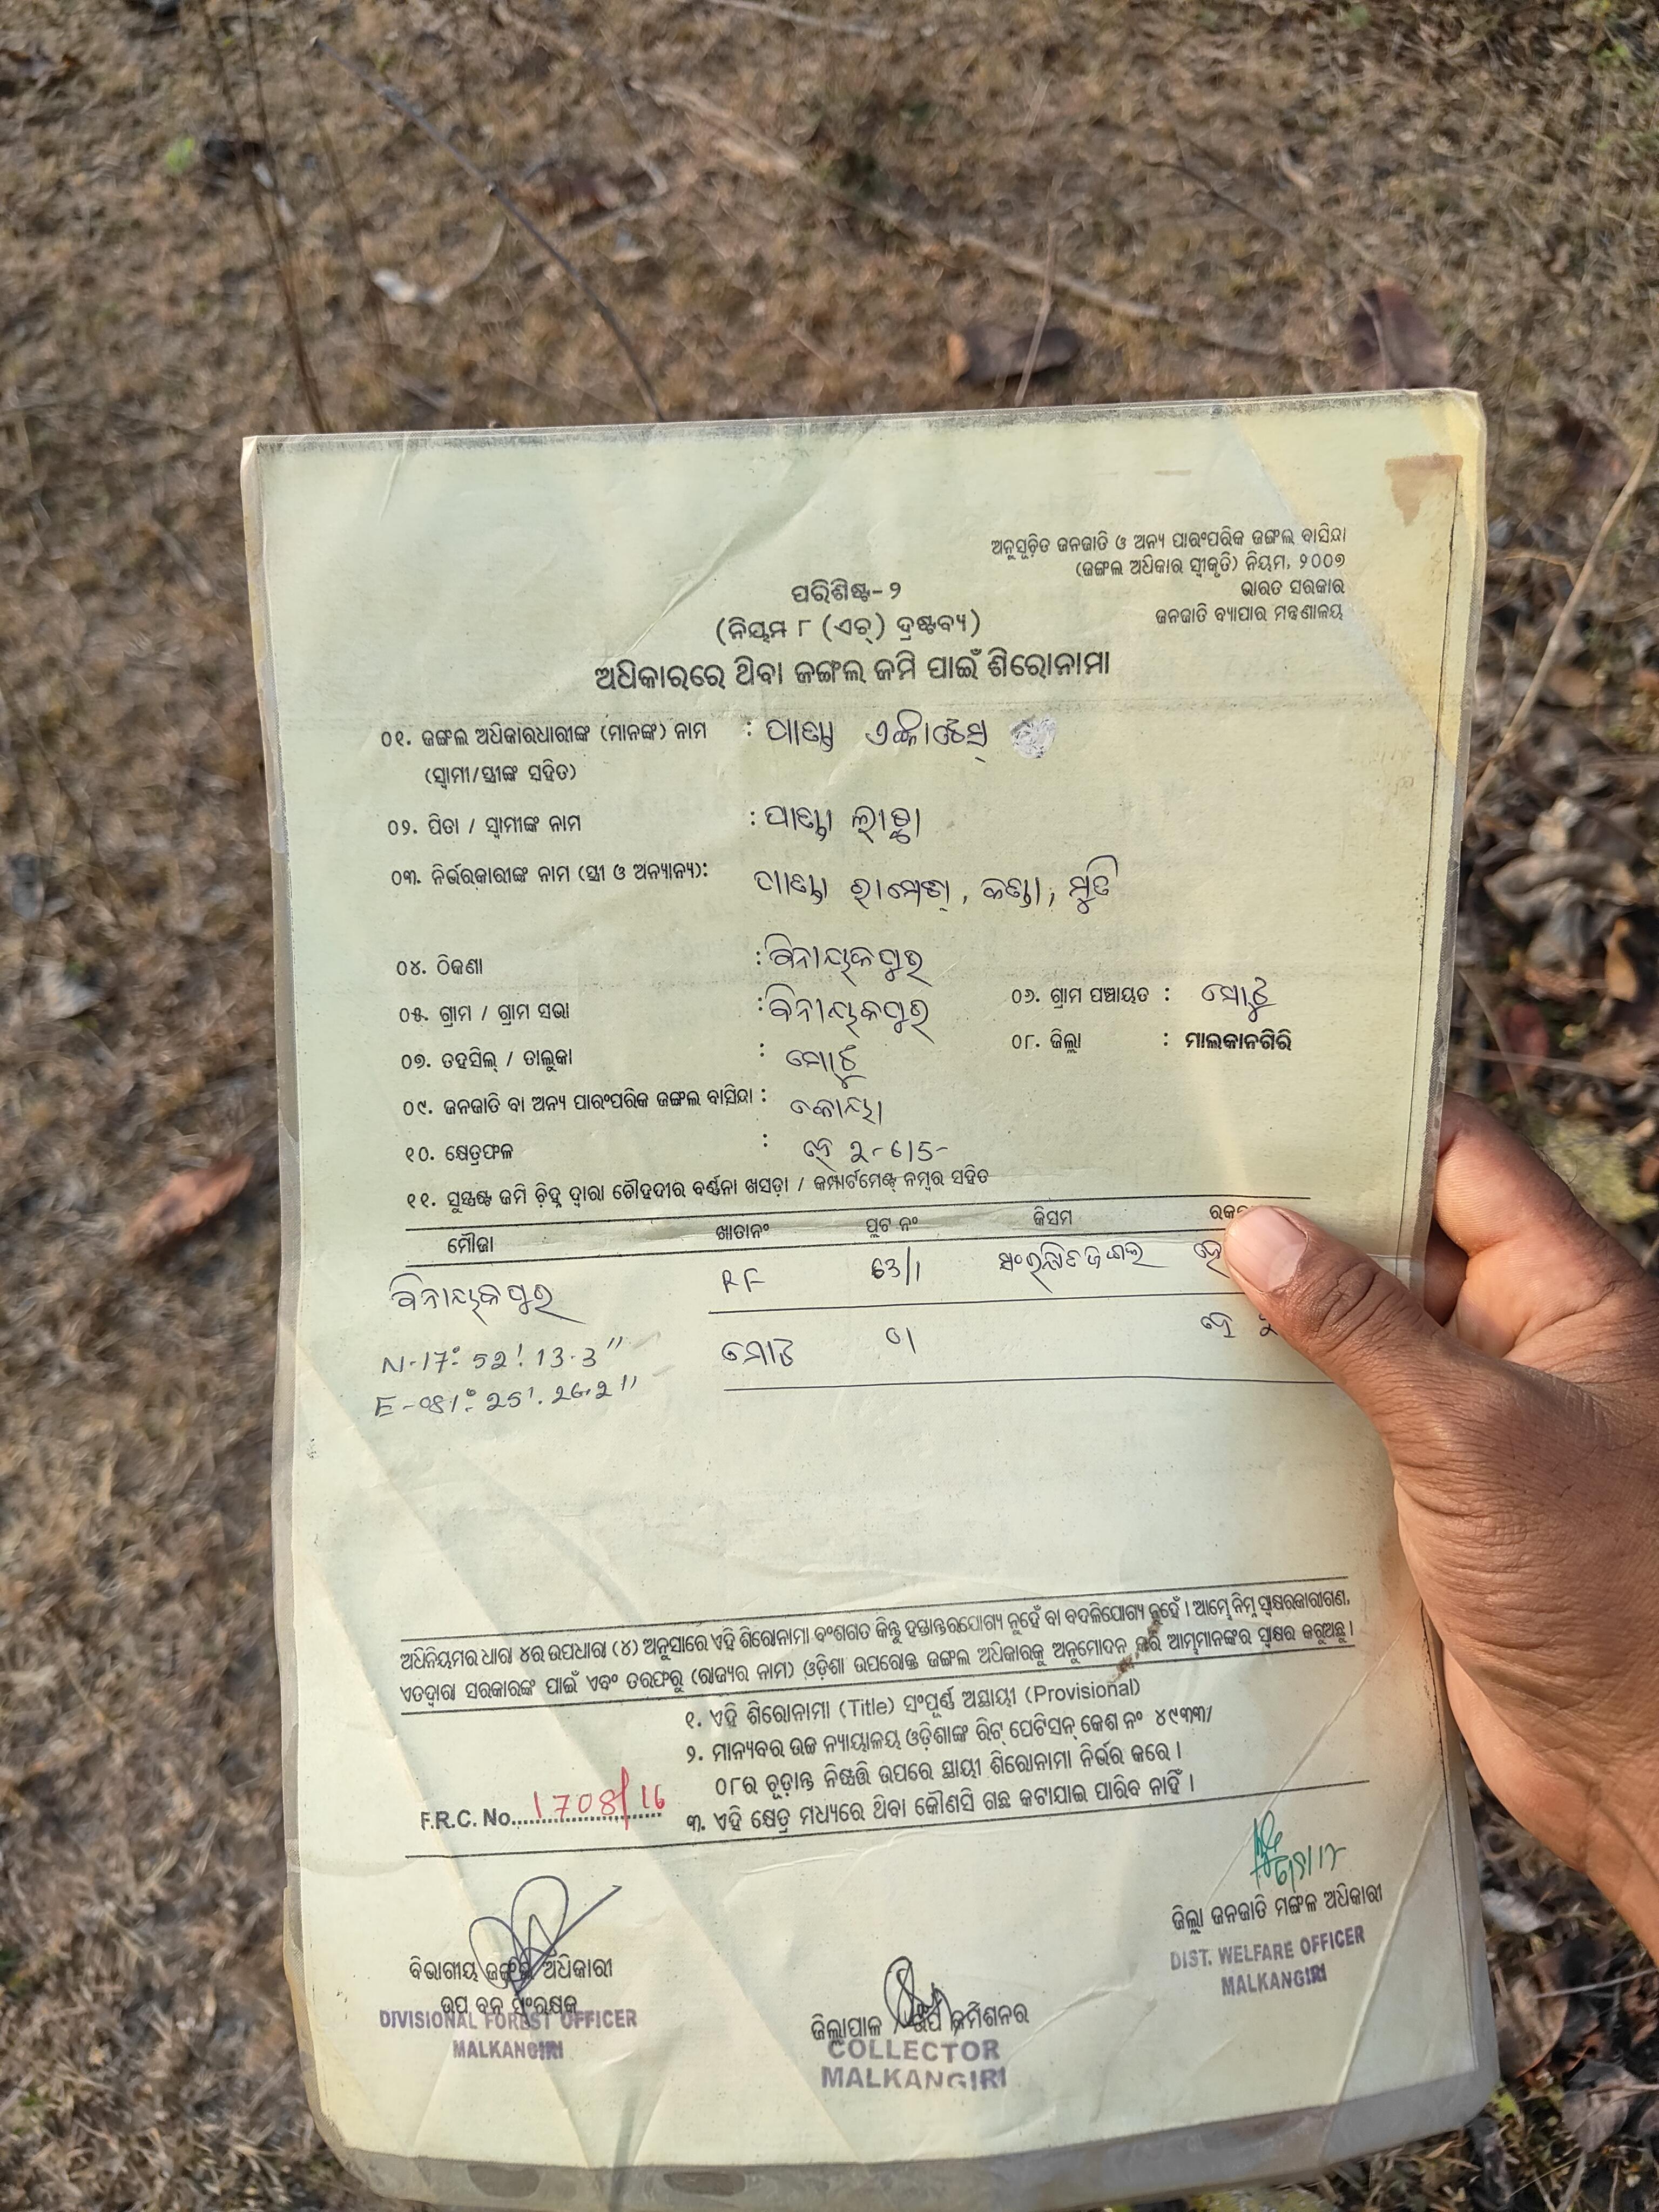 ଅନୁସୂଚିତ ଜନଜାତି ଓ ଅନ୍ୟ ପାରଂପରିକ ଜଙ୍ଗଲ ବାସିନ୍ଦା
(ଜଙ୍ଗଲ ଅଧିକାର ସ୍ୱୀକୃତି) ନିୟମ, ୨୦୦୭
ଭାରତ ସରକାର
ଜନଜାତି ବ୍ୟାପାର ମନ୍ତ୍ରଣାଳୟ
ପରିଶିଷ୍ଟ- ୨
(ନିୟମ ୮ (ଏଚ୍) ଦ୍ରଷ୍ଟବ୍ୟ)
ଅଧିକାରରେ ଥିବା ଜଙ୍ଗଲ ଜମି ପାଇଁ ଶିରୋନାମା
୦୧. ଜଙ୍ଗଲ ଅଧିକାରଧାରୀଙ୍କ (ମାନଙ୍କ) ନାମ :
(ସ୍ୱାମୀ/ସ୍ତ୍ରୀଙ୍କ ସହିତ)
୦୨. ପିତା / ସ୍ୱାମୀଙ୍କ ନାମ :
୦୩. ନିର୍ଭରକାରୀଙ୍କ ନାମ (ସ୍ତ୍ରୀ ଓ ଅନ୍ୟାନ୍ୟ):
୦୪. ଠିକଣା : ବିନାୟକପୁର
୦୫. ଗ୍ରାମ / ଗ୍ରାମ ସଭା : ବିନାୟକପୁର ୦୬. ଗ୍ରାମ ପଞ୍ଚାୟତ : ମୋଟୁ
୦୭. ତହସିଲ୍ / ତାଲୁକା : ମୋଟୁ ୦୮. ଜିଲ୍ଲା : ମାଲକାନଗିରି
୦୯. ଜନଜାତି ବା ଅନ୍ୟ ପାରଂପରିକ ଜଙ୍ଗଲ ବାସିନ୍ଦା : କୋୟା
୧୦. କ୍ଷେତ୍ରଫଳ : 2-615-
୧୧. ସୁସ୍ପଷ୍ଟ ଜମି ଚିହ୍ନ ଦ୍ୱାରା ଚୌହଦୀର ବର୍ଣ୍ଣନା ଖସଡ଼ା / କମ୍ପାର୍ଟମେଣ୍ଟ୍ ନମ୍ବର ସହିତ
ମୌଜା ଖାତାନଂ ପ୍ଲଟ ନଂ କିସମ
ବିନାୟକପୁର RF 63/1 ସଂରକ୍ଷିତ ଜଙ୍ଗଲ ହେ
ମୋଟ ୦୧ ହେ
N-17° 52' 13.3"
E-081° 25' 26.2"
ଅଧିନିୟମର ଧାରା ୪ର ଉପଧାରା (୪) ଅନୁସାରେ ଏହି ଶିରୋନାମା ବଂଶଗତ କିନ୍ତୁ ହସ୍ତାନ୍ତରଯୋଗ୍ୟ ନୁହେଁ ବା ବଦଳିଯୋଗ୍ୟ ନୁହେଁ । ଆମ୍ଭେ ନିମ୍ନ ସ୍ୱାକ୍ଷରକାରୀଗଣ,
ଏତଦ୍ୱାରା ସରକାରଙ୍କ ପାଇଁ ଏବଂ ତରଫରୁ (ରାଜ୍ୟର ନାମ) ଓଡ଼ିଶା ଉପରୋକ୍ତ ଜଙ୍ଗଲ ଅଧିକାରକୁ ଅନୁମୋଦନ କରି ଆମ୍ଭମାନଙ୍କର ସ୍ୱାକ୍ଷର କରୁଅଛୁ ।
୧. ଏହି ଶିରୋନାମା (Title) ସଂପୂର୍ଣ୍ଣ ଅସ୍ଥାୟୀ (Provisional)
୨. ମାନ୍ୟବର ଉଚ୍ଚ ନ୍ୟାୟାଳୟ ଓଡ଼ିଶାଙ୍କ ରିଟ୍ ପେଟିସନ୍ କେଶ ନଂ ୪୯୩୩/
୦୮ର ଚୂଡ଼ାନ୍ତ ନିଷ୍ପତ୍ତି ଉପରେ ସ୍ଥାୟୀ ଶିରୋନାମା ନିର୍ଭର କରେ ।
୩. ଏହି କ୍ଷେତ୍ର ମଧ୍ୟରେ ଥିବା କୌଣସି ଗଛ କଟାଯାଇ ପାରିବ ନାହିଁ ।
F.R.C. No. 1708/16
ବିଭାଗୀୟ ଜଙ୍ଗଲ ଅଧିକାରୀ
ଉପ ବନ ସଂରକ୍ଷକ
DIVISIONAL FOREST OFFICER
MALKANGIRI
ଜିଲ୍ଲାପାଳ / ଉପ କମିଶନର
COLLECTOR
MALKANGIRI
ଜିଲ୍ଲା ଜନଜାତି ମଙ୍ଗଳ ଅଧିକାରୀ
DIST. WELFARE OFFICER
MALKANGIRI